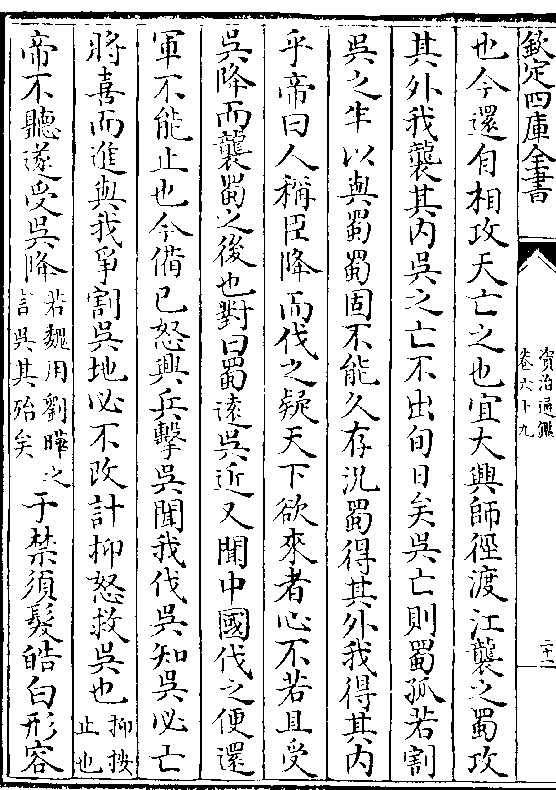 欽定四庫全書
資治通鑑
卷六十九
二十二
也今還自相攻天亡之也宜大興師徑渡江襲之蜀攻
其外我襲其内吳之亡不出旬日矣吳亡則蜀孤若割
吳之半以與蜀蜀固不能久存況蜀得其外我得其内
乎帝曰人稱臣降而伐之疑天下欲來者心不若且受
吳降而襲蜀之後也對曰蜀遠吳近又聞中國伐之便還
軍不能止也今備已怒興兵擊吳聞我伐吳知吳必亡
將喜而進與我爭割吳地必不改計抑怒救吳也抑按止也
帝不聽遂受吳降若魏用劉曄之言吳其殆矣于禁須髮皓白形容